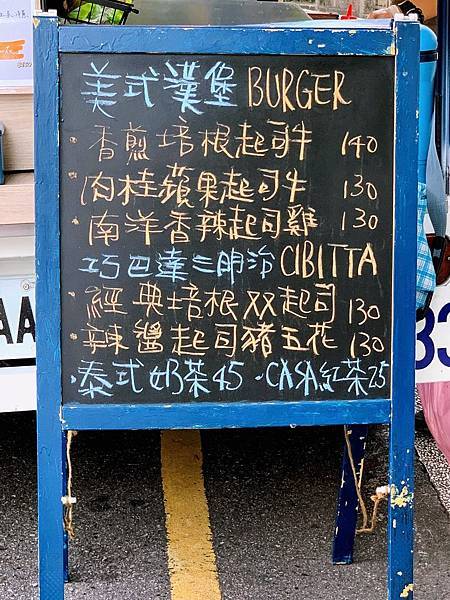 美式漢堡 BURGER
·香煎培根起司牛 140
·肉桂蘋果起司牛 130
·南洋香辣起司雞 130
巧巴達三明治 CIBITTA
·經典培根双起司 130
·辣醬起司豬五花 130
·泰式奶茶45 ·CASA紅茶25
AA
83